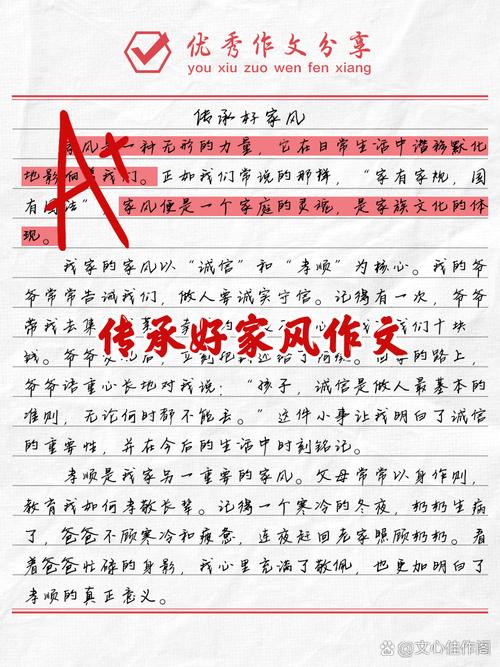 优秀作文分享
you xiu zuo wen fen xiang
传承好家风
A+
家风是一种无形的力量，它在日常生活中潜移默化
地影响着我们。正如我们常说的那样，“家有家规，国
有国法”，家风便是一个家庭的灵魂，是家族文化的体
现。
我家的家风以“诚信”和“孝顺”为核心。我的爷
爷常常告诫我们，做人要诚实守信。记得有一次，爷爷
带我去集 们十块
传承好家风作文
钱。爷爷 的路上，
爷爷语重心长地对我说：“孩子，诚信是做人最基本的
准则，无论何时都不能丢。”这件小事让我明白了诚信
的重要性，并在今后的生活中时刻铭记。
孝顺是我家另一重要的家风。父母常常以身作则，
教育我如何孝敬长辈。记得一个寒冷的冬夜，奶奶生病
了，爸爸不顾寒冷和疲惫，连夜赶回老家照顾奶奶。看
着爸爸忙碌的身影，我心里充满了敬佩，也更加明白了
孝顺的真正意义。
@文心佳作阁